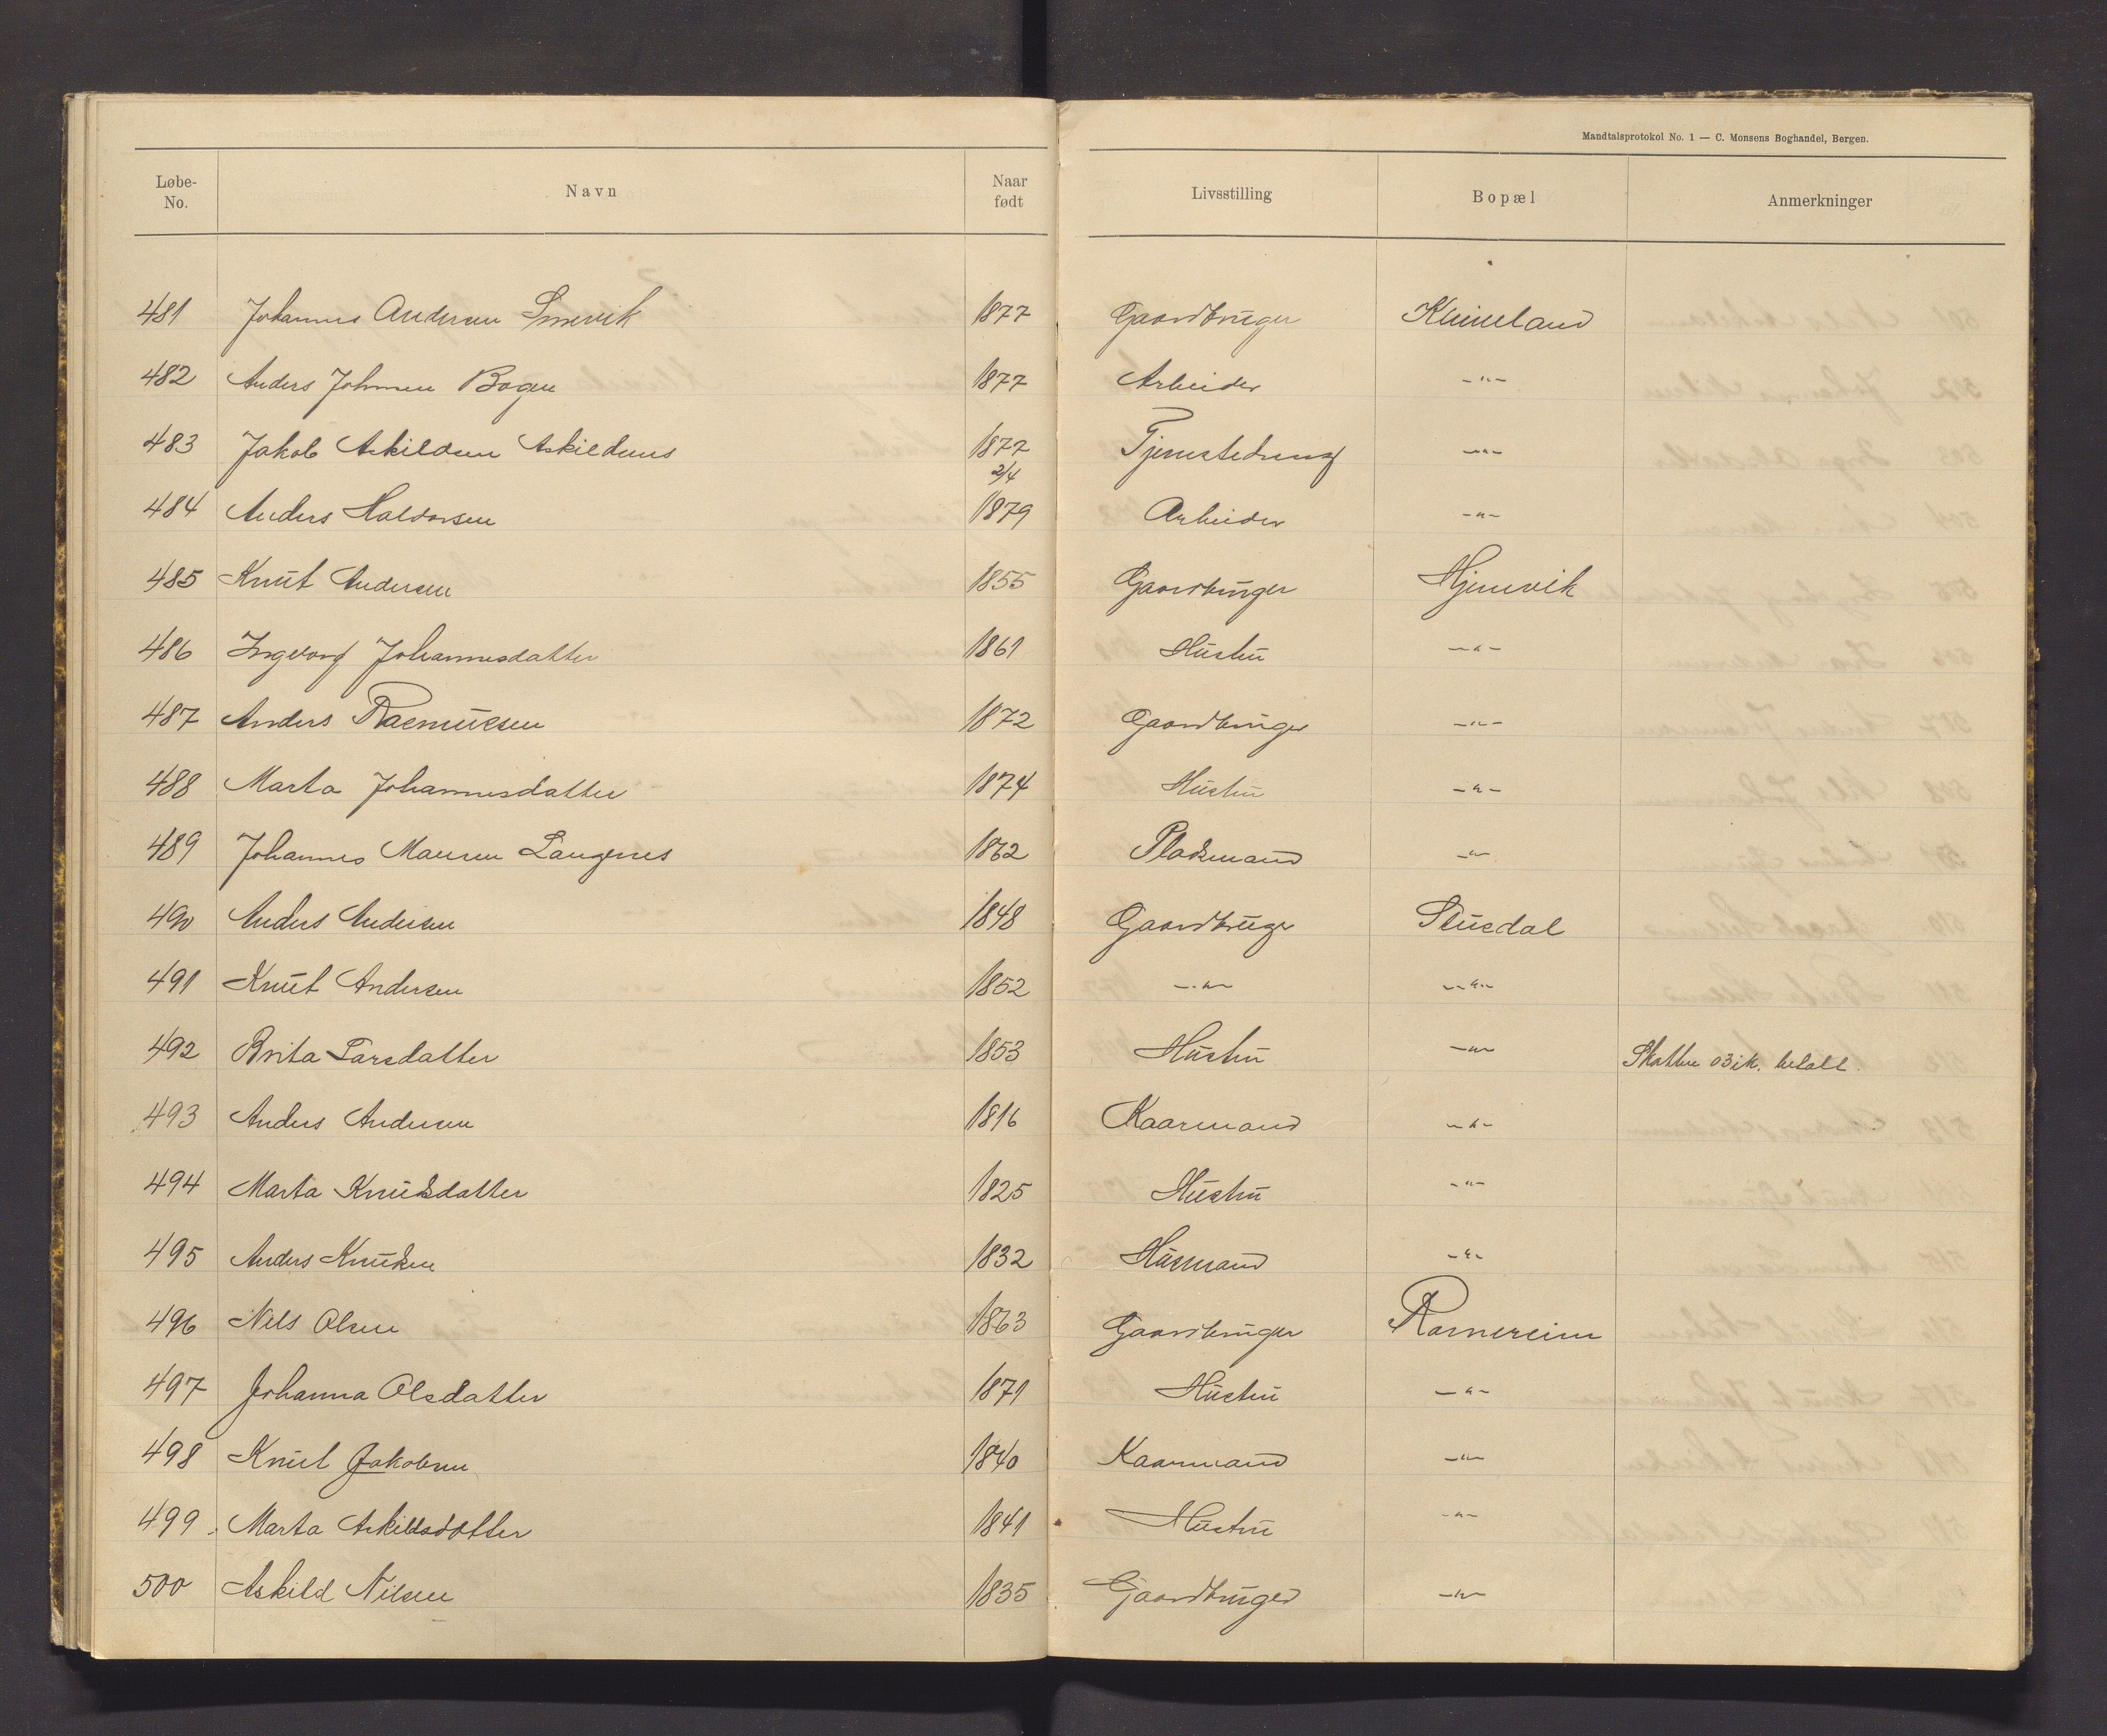 Mandtalsprotokol No. 1 — C. Monsens Boghandel, Bergen.
Løbe-No. Navn Naar født Livsstilling Bopæl Anmerkninger
481 Johannes Andersen 1877 Gaardbruger
482 Anders Johnsen Bogen 1877 Arbeider -"-
483 Jakob Askildsen Askildsnes 1877 -"-
2/4
484 Anders Haldorsen 1879 Arbeider -"-
485 Knut Andersen 1855 Gaardbruger Hjemvik
486 Ingeborg Johannesdatter 1861 Hustru -"-
487 Anders Rasmussen 1872 Gaardbruger -"-
488 Marta Johannesdatter 1874 Hustru -"-
489 Johannes Monsen Langenes 1862 Pladsmand -"-
490 Anders Andersen 1848 Gaardbruger Stusdal
491 Knut Andersen 1852 -"- -"-
492 Brita Larsdatter 1853 Hustru -"- Skatten 03 ik. betalt.
493 Anders Andersen 1816 Kaarmand -"-
494 Marta Knutsdatter 1825 Hustru -"-
495 Anders Knutsen 1832 Husmand -"-
496 Nils Olsen 1863 Gaardbruger Romereim
497 Johanna Olsdatter 1871 Hustru -"-
498 Knut Jakobsen 1840 Kaarmand -"-
499 Marta Askildsdotter 1841 Hustru -"-
500 Askild Nilsen 1835 Gaardbruger -"-